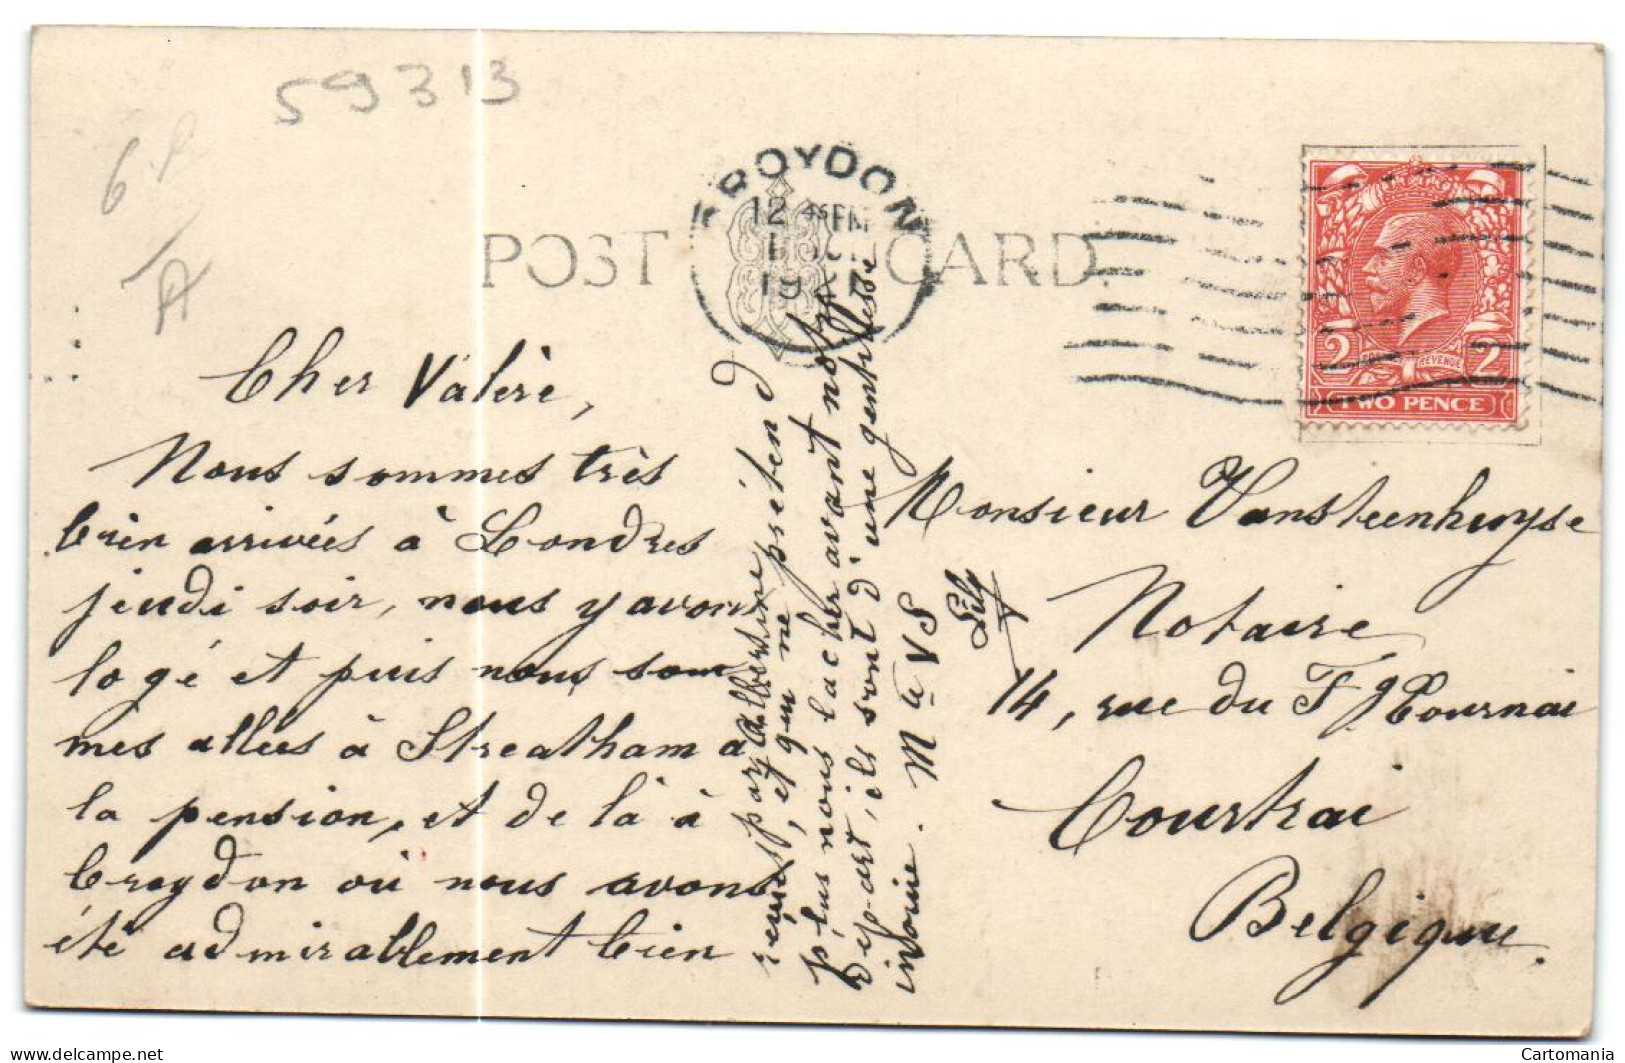 59313
6
A
POST CARD.
CROYDON
12 45 PM
19
REVENUE
2 2
TWO PENCE
Cher Valère,
Nous sommes très
bien arrivées à Londres
jeudi soir, nous y avons
logé et puis nous som
mes allées à Streatham à
la pension, et de là à
Croydon où nous avons
été admirablement bien
reçues par Albersine
, et qui ne prétend
plus nous lacher avant notre
départ, ils sont d'une gentillesse
inouie. M a V S
Lily
Monsieur Vansteenhuyse
Notaire
14, rue du Fg Tournai
Courtrai
Belgique.
delcampe.net
Cartomania